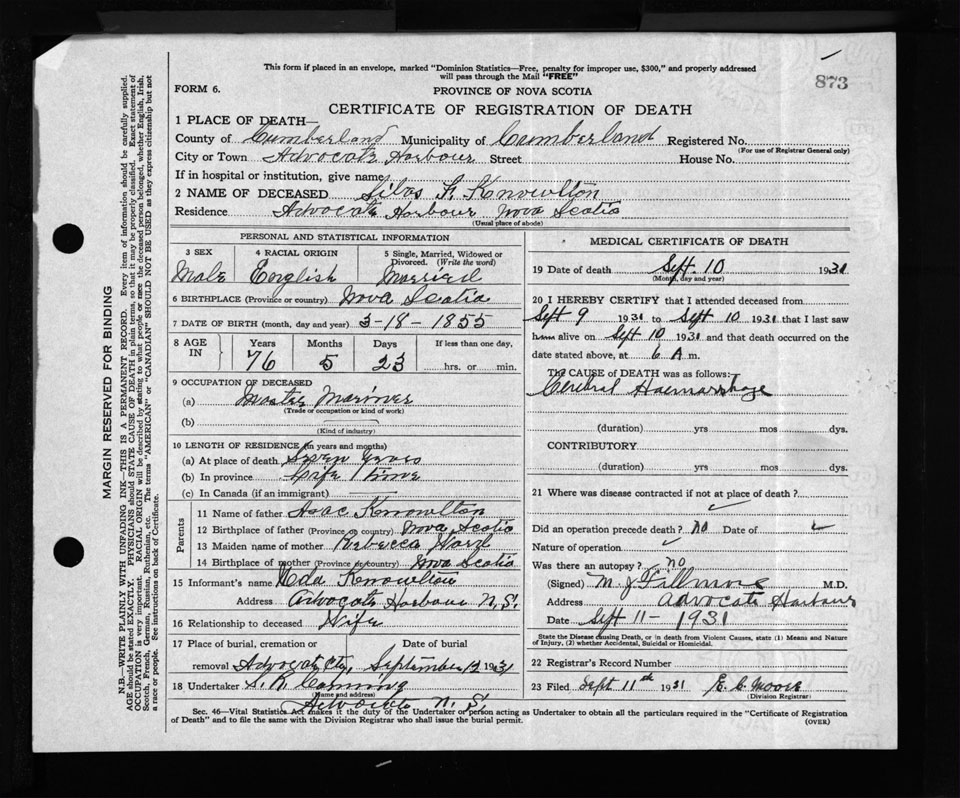 873
This form if placed in an envelope, marked "Dominion Statistics—Free, penalty for improper use, $300," and properly addressed
will pass through the Mail "FREE"
FORM 6.
PROVINCE OF NOVA SCOTIA
CERTIFICATE OF REGISTRATION OF DEATH
1 PLACE OF DEATH—
County of Cumberland Municipality of Cumberland Registered No.
(For use of Registrar General only)
City or Town Advocate Harbour Street House No.
If in hospital or institution, give name
2 NAME OF DECEASED Silas F. Knowlton
Residence Advocate Harbour Nova Scotia
(Usual place of abode)
PERSONAL AND STATISTICAL INFORMATION
3 SEX 4 RACIAL ORIGIN 5 Single, Married, Widowed or
Divorced. (Write the word)
Male English Married
6 BIRTHPLACE (Province or country) Nova Scotia
7 DATE OF BIRTH (month, day and year) 3-18-1855
8 AGE IN Years Months Days If less than one day,
76 5 23 hrs. or min.
9 OCCUPATION OF DECEASED
(a) Master Mariner
(Trade or occupation or kind of work)
(b)
(Kind of industry)
10 LENGTH OF RESIDENCE (in years and months)
(a) At place of death Seven Years
(b) In province Life Time
(c) In Canada (if an immigrant)
Parents
11 Name of father Isac Knowlton
12 Birthplace of father (Province or country) Nova Scotia
13 Maiden name of mother Rebecca
14 Birthplace of mother (Province or country) Nova Scotia
15 Informant's name Knowlton
Address Advocate Harbour N.S.
16 Relationship to deceased Wife
17 Place of burial, cremation or Date of burial
removal Advocate September 12 1931
18 Undertaker S. R. Corning
(Name and address)
Advocate N.S.
MEDICAL CERTIFICATE OF DEATH
19 Date of death Sept. 10 1931
(Month, day and year)
20 I HEREBY CERTIFY that I attended deceased from
Sept 9 1931 to Sept 10 1931 that I last saw
him alive on Sept 10 1931 and that death occurred on the
date stated above, at 6 A m.
The CAUSE of DEATH was as follows:
Cerebral Haemarrhage
(duration) yrs mos dys.
CONTRIBUTORY
(duration) yrs mos dys.
21 Where was disease contracted if not at place of death?
Did an operation precede death? No Date of
Nature of operation
Was there an autopsy? no
(Signed) M. J. Fillmore M.D.
Address Advocate Harbour
Date Sept 11-1931
State the Disease causing Death, or in death from Violent Causes, state (1) Means and Nature
of Injury, (2) whether Accidental, Suicidal or Homicidal.
22 Registrar's Record Number
23 Filed Sept 11th 1931 E. C. Moore
(Division Registrar)
Sec. 46—Vital Statistics Act makes it the duty of the Undertaker or person acting as Undertaker to obtain all the particulars required in the "Certificate of Registration
of Death" and to file the same with the Division Registrar who shall issue the burial permit.
(OVER)
MARGIN RESERVED FOR BINDING
N.B.—WRITE PLAINLY WITH UNFADING INK—THIS IS A PERMANENT RECORD. Every item of information should be carefully supplied.
AGE should be stated EXACTLY. PHYSICIANS should STATE CAUSE OF DEATH in plain terms, so that it may be properly classified. Exact statement of
OCCUPATION is very important. RACIAL ORIGIN will be described by stating to what people or race the deceased person belonged, whether English, Irish,
Scotch, French, German, Russian, Ruthenian, etc. The terms "AMERICAN" or "CANADIAN" SHOULD NOT BE USED as they express citizenship but not
a race or people. See instructions on back of Certificate.